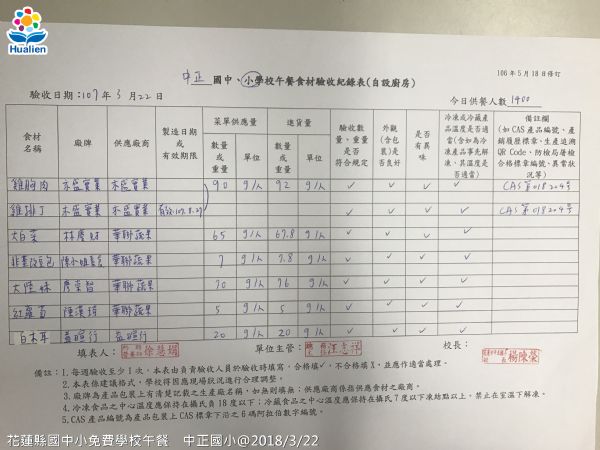 Hualien
106年5月18日修訂
中正 國中、小學校午餐食材驗收紀錄表(自設廚房)
驗收日期:107年3月22日
今日供餐人數1400
食材名稱 廠牌 供應廠商 製造日期或有效期限 菜單供應量 進貨量 驗收數量、重量是否符合規定 外觀(含包裝)是否良好 是否有異味 冷凍或冷藏產品溫度是否適當(含如為冷凍產品事先解凍、其溫度是否適當) 備註欄(如CAS產品編號、產銷履歷標章、生產追溯QR Code、防檢局屠檢合格標章編號、異常狀況等)
數量或重量 單位 數量或重量 單位
雞胸肉 90 g/人 92 g/人 ✓ ✓ ✓ ✓ CAS第018204號
雞排丁 有效107.8.27 ✓ ✓ ✓ ✓ CAS第018204號
大白菜 65 g/人 67.8 g/人 ✓ ✓ ✓ ✓
7 g/人 7.8 g/人 ✓ ✓ ✓ ✓
70 g/人 76 g/人 ✓ ✓ ✓ ✓
紅蘿蔔 5 g/人 5 g/人 ✓ ✓ ✓ ✓
白木耳 20 g/人 20 g/人 ✓ ✓ ✓ ✓
填表人: 單位主管: 校長:
備註:1.每週驗收至少1次,本表由負責驗收人員於驗收時填寫,合格填✓,不合格填X,並應作適當處理。
2.本表係建議格式,學校得因應現場狀況進行合理調整。
3.廠牌為產品包裝上有清楚記載之生產廠名稱,如無則填無;供應廠商係指供應食材之廠商。
4.冷凍食品之中心溫度應保持在攝氏負18度以下;冷藏食品之中心溫度應保持在攝氏7度以下凍結點以上,禁止在室溫下解凍。
5.CAS產品編號為產品包裝上CAS標章下沿之6碼阿拉伯數字編號。
花蓮縣國中小免費學校午餐 中正國小@2018/3/22